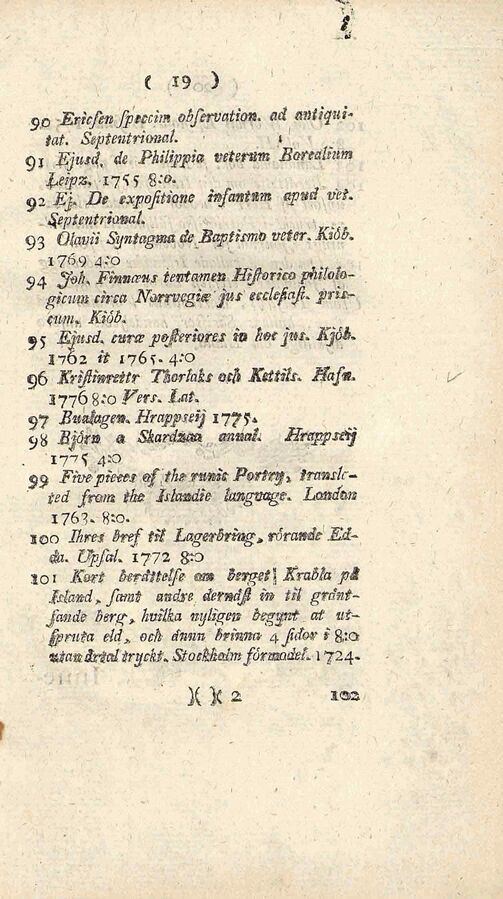 ( 19 )
90 Ericſen ſpecim obſervation. ad antiqui-
tat. Septentrional.
91 Ejusd. de Philippia veterum Borealium
Leipz. 1755 8:o.
92 Ej. De expoſitione infantum apud vet.
Septentrional.
93 Olavii Syntagma de Baptismo veter. Kiöb.
1769 4:0
94 Joh. Finnæus tentamen Hiſtorico philolo-
gicum circa Norrvegiæ jus eccleſiaſt. priſ-
cum. Kiöb.
95 Ejusd. curæ poſteriores in hoc jus. Kjöb.
1762 it 1765. 4:0
96 Kriſtinrettr Thorlaks och Kettils. Hafn.
1776 8:0 Vers. Lat.
97 Bualagen. Hrappseij 1775.
98 Björn a Skardzaa annal. Hrappseij
1775 4:0
99 Five pieces of the runic Portry, transle-
ted from the Islandie language. London
1763. 8:0.
100 Ihres bref til Lagerbring, rörande Ed-
da. Upſal. 1772 8:0
101 Kort berättelſe om berget Krabla på
Island, ſamt andre dernäſt in til gränt-
ſande berg, hvilka nyligen begynt at ut-
ſpruta eld, och ännu brinna 4 ſidor i 8:0
utan årtal tryckt. Stockholm förmodel. 1724.
)( )( 2 102